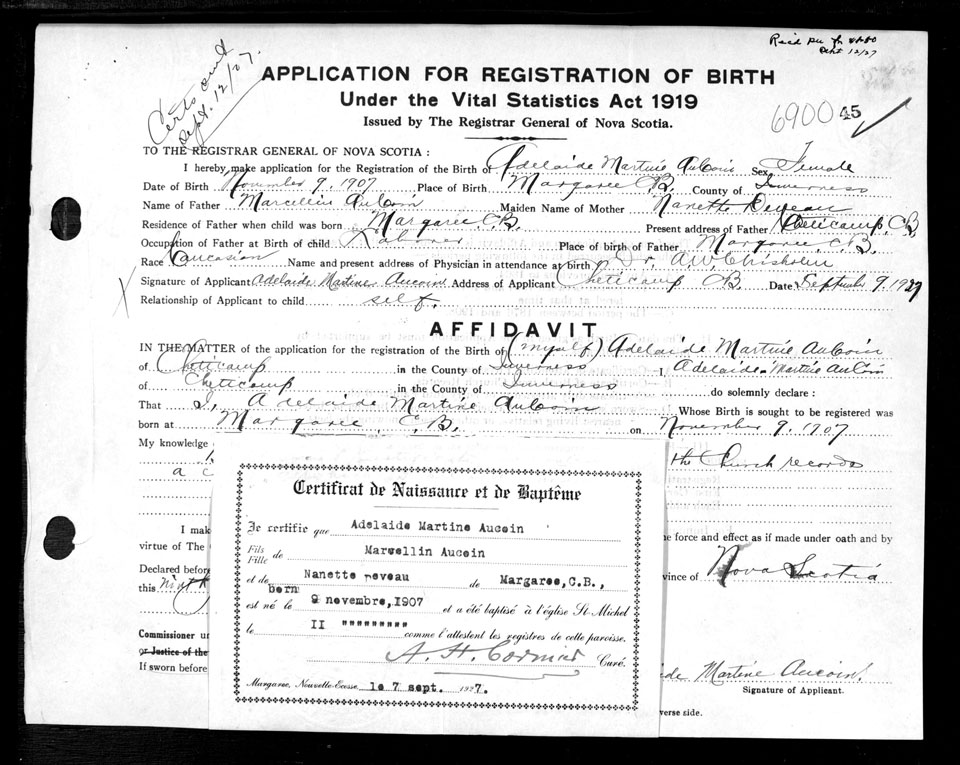 Rec'd
Sept 12/27
Certs out
Sept. 12/27.
APPLICATION FOR REGISTRATION OF BIRTH
Under the Vital Statistics Act 1919
Issued by The Registrar General of Nova Scotia.
6900 45
TO THE REGISTRAR GENERAL OF NOVA SCOTIA :
I hereby make application for the Registration of the Birth of Adelaide Martine AuCoin Sex Female
Date of Birth November 9, 1907 Place of Birth Margaree C.B. County of Inverness
Name of Father Marcellin AuCoin Maiden Name of Mother Nanette Deveau
Residence of Father when child was born Margaree C.B. Present address of Father Cheticamp, C.B.
Occupation of Father at Birth of child Laborer Place of birth of Father Margaree, C.B.
Race Caucasian Name and present address of Physician in attendance at birth Dr. A.W. Chisholm
Signature of Applicant Adelaide Martine Aucoin Address of Applicant Cheticamp CB. Date September 9, 1927
Relationship of Applicant to child self.
AFFIDAVIT
IN THE MATTER of the application for the registration of the Birth of (myself) Adelaide Martine AuCoin
of Cheticamp in the County of Inverness I Adelaide Martine AuCoin
of Cheticamp in the County of Inverness do solemnly declare :
That I, Adelaide Martine AuCoin Whose Birth is sought to be registered was
born at Margaree, C.B. on November 9, 1907
My knowledge the Church records
a
I mak e force and effect as if made under oath and by
virtue of The vince of Nova Scotia
Declared before
this Ninth
Commissioner
or Justice of the
If sworn before
ide Martine Aucoin.
Signature of Applicant.
verse side.
Certificat de Naissance et de Baptême
Je certifie que Adelaide Martine Aucoin
Fils
Fille de Marwellin Aucoin
et de Nanette reveau de Margaree, C.B.,
born
est né le 9 novembre, 1907 et a été baptisé à l'église St-Michel
le II """"""""" comme l'attestent les registres de cette paroisse.
A. H. Cormier Curé.
Margaree, Nouvelle-Ecosse, le 7 sept. 1927.